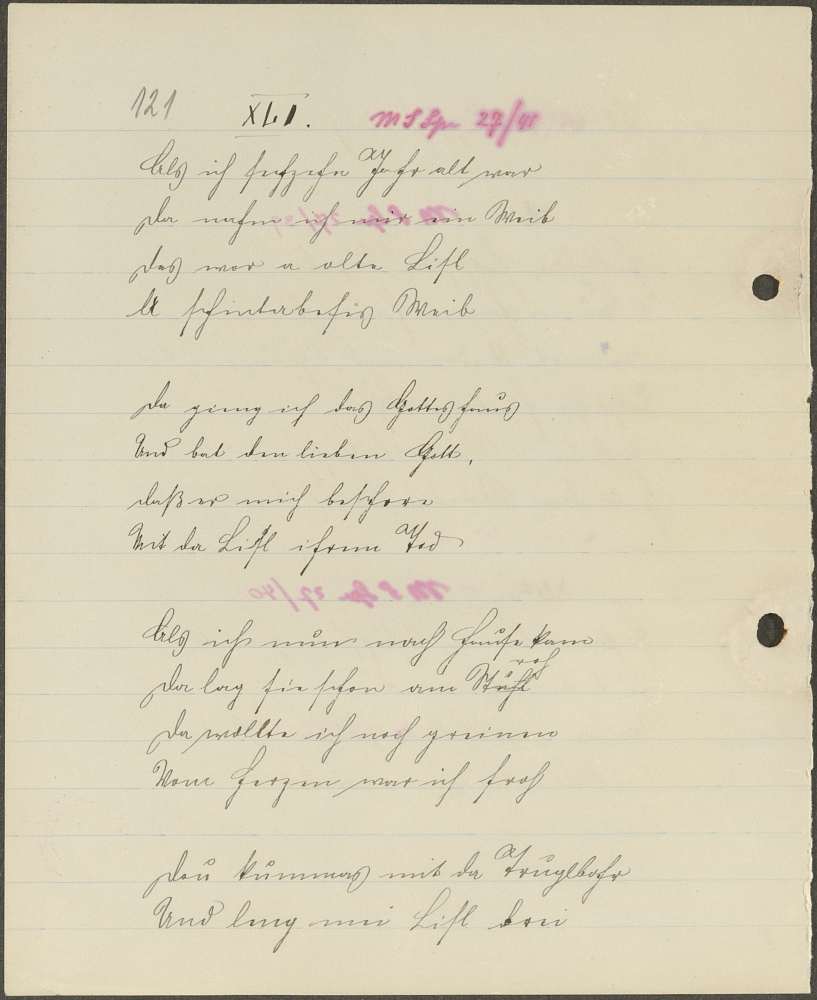 121 XLI. MS Spr 27/41
Als ich sechzehn Jahr alt war
Da nahm ich mir ein Weib
Das war a olte Lisl
A schintabesis Weib
Da gieng ich das Gotteshaus
Und bat den lieben Gott,
daß er mich beschere
Mit da Lisl ihren Tod
Als ich nun nach Hause kam
roh
Da lag sie schon am Stuhl
Da wollte ich noch greinen
Vom Herzen war ich froh
Dau kummas mit da Truglbohr
Und leng mei Lisl drei